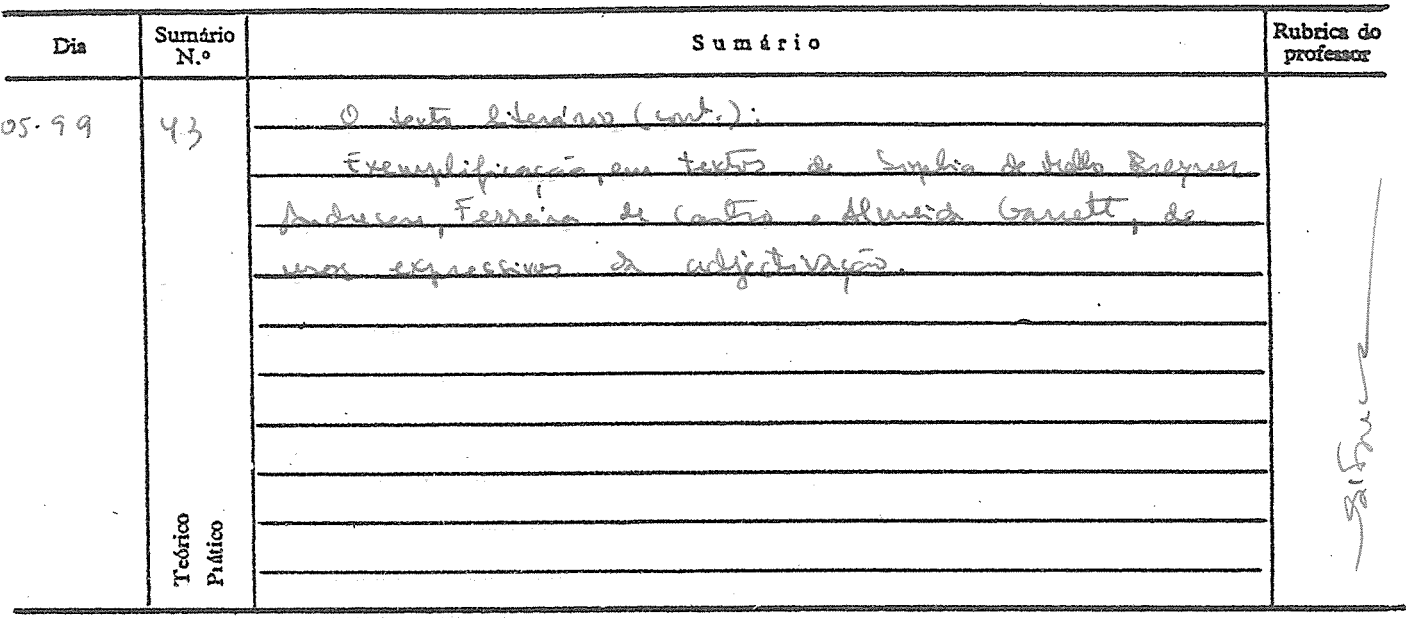 Dia
Sumário N.º
Sumário
Rubrica do professor
05.99
43
O texto literário (cont.):
Exemplificação, em textos de Sophia de Mello Breyner
Andresen, Ferreira de Castro e Almeida Garrett, de
usos expressivos da adjectivação.
Teórico
Prático